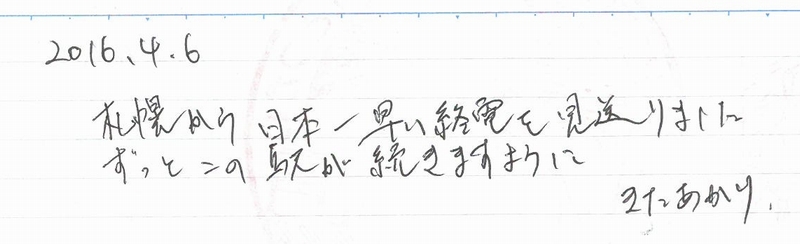 2016.4.6
札幌から 日本一早い終電を見送りました
ずっとこの駅が続きますように
きたあかり.